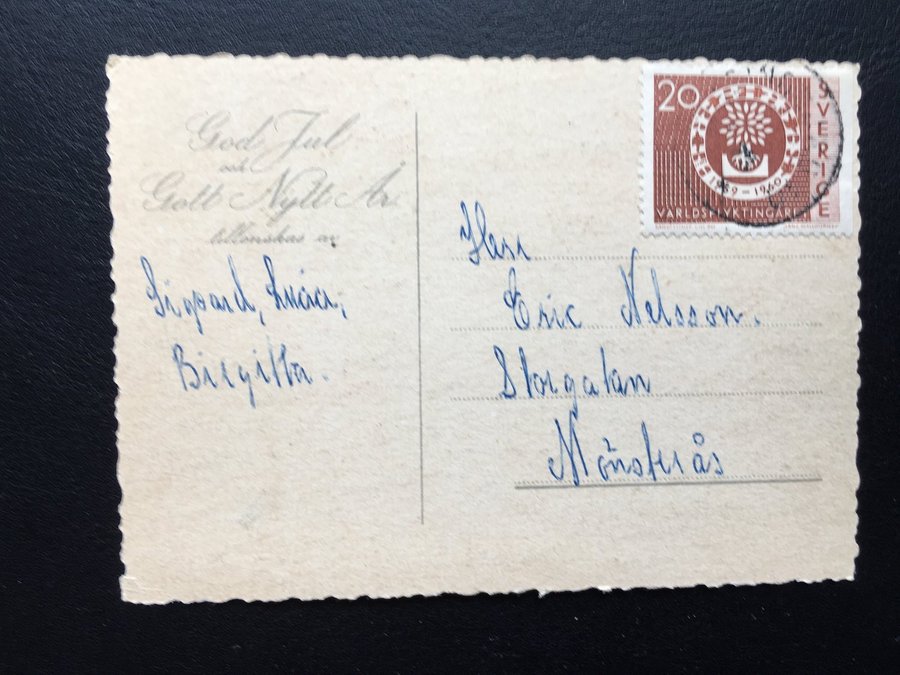 God Jul
och
Gott Nytt År
tillönskas av
Sigvard, Svea,
Birgitta.
20
SVERIGE
1959-1960
VÄRLDSFLYKTINGÅRET
Herr
Eric Nelsson.
Storgatan
Mönsterås